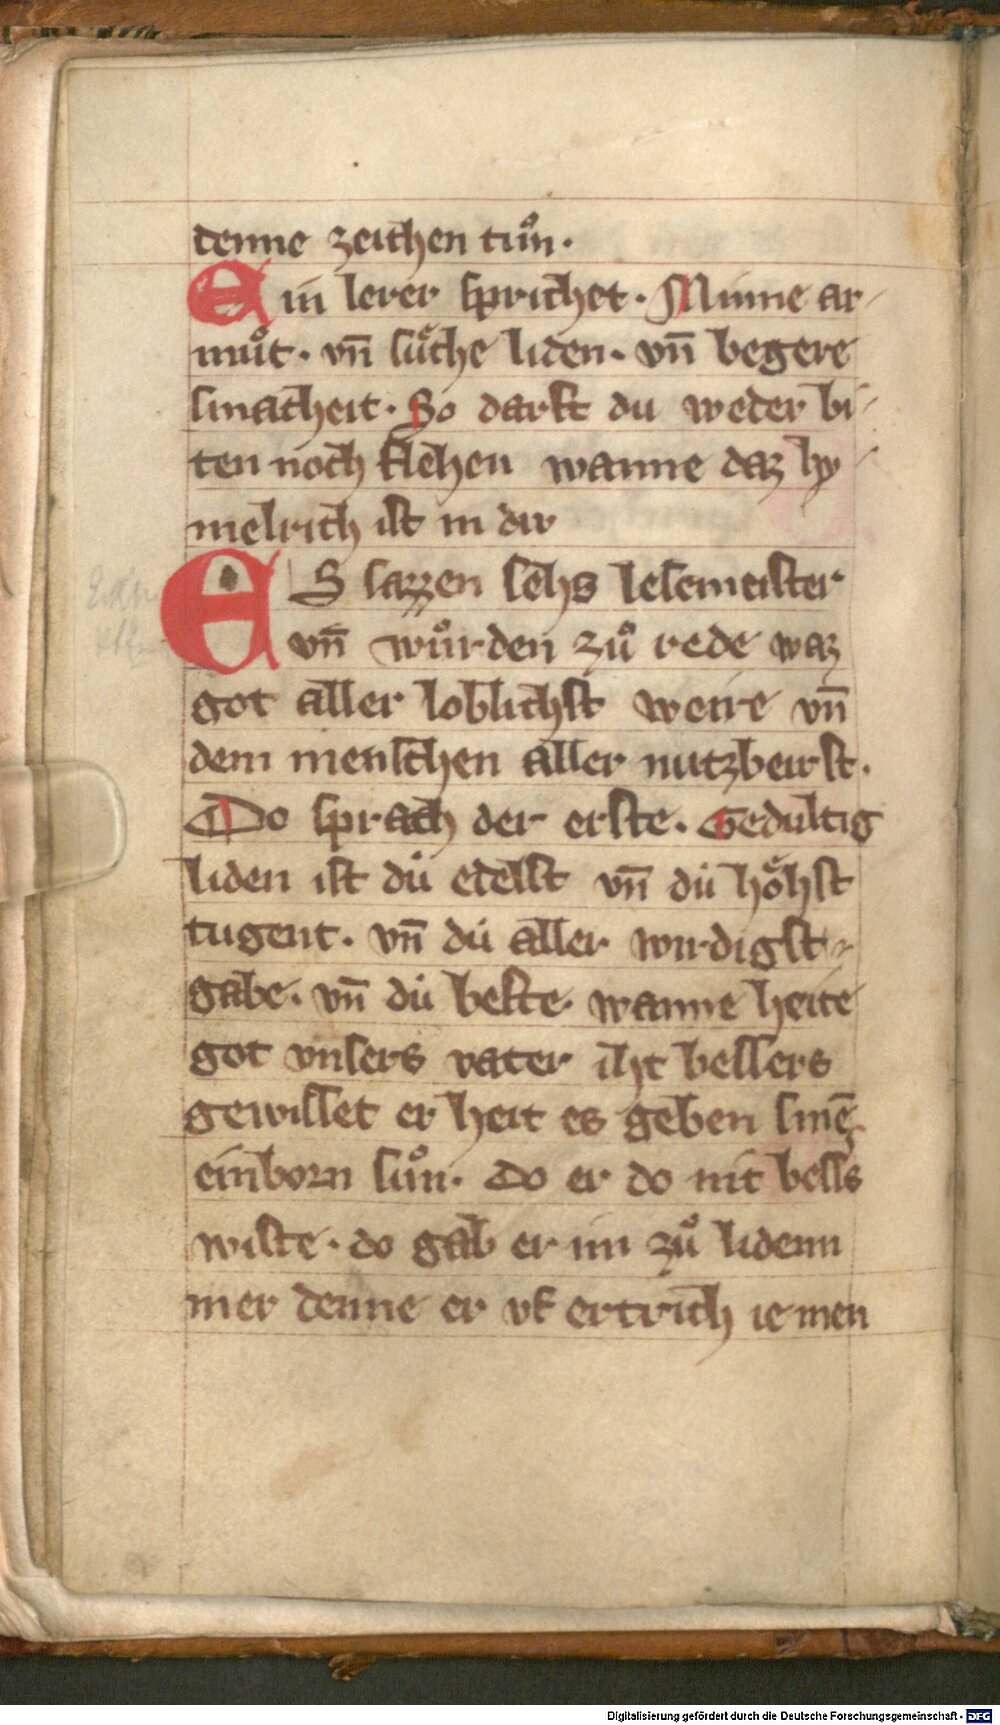 denne zeichen tuͦn·
Ein lerer sprichet· Minne ar-
muͦt· vn̄ suͤche liden· vn̄ begere
smacheit· So darft du weder bi-
ten noch flehen wanne daz hy-
melrich ist in dir
ES sazzen sehs lesemeister
vn̄ wuͦrden zuͦ rede waz
got aller loblichst weire vn̄
dem menschen aller nutzbeirst·
Do sprach der erste· Gedultig
liden ist dú edelst vn̄ dú hoͤhst
tugent· vn̄ dú aller wirdigst-
gabe· vn̄ dú beste· wanne heite
got vnsers vater iht bessers
gewisset er heit es geben sinē
einborn suͦn· Do er do nit bessers
wiste· do gab er im zuͦ lidenn
mer denne er vf ertrich iemen
Digitalisierung gefördert durch die Deutsche Forschungsgemeinschaft - DFG